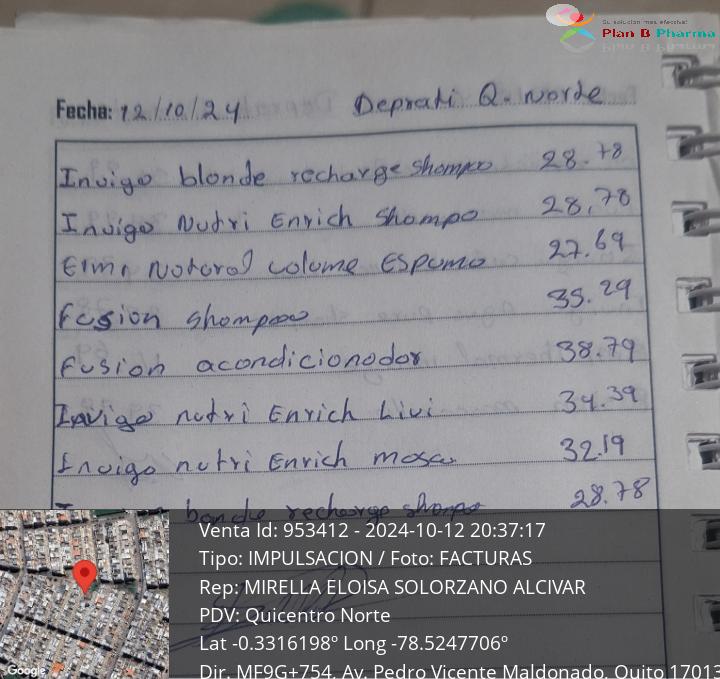 Su solucion mas efectiva!
Plan B Pharma
Fecha: 12/10/24 Deprati Q. Norte
Invigo blonde recharge shampo 28.78
Invigo Nutri Enrich Shampo 28,78
Eimi Natural volume Espuma 27.69
Fusion shampoo 35.29
Fusion acondicionador 38.79
Invigo nutri Enrich Livi 34.39
Invigo nutri Enrich masca 32.19
recharge shampo 28.78
Venta Id: 953412 - 2024-10-12 20:37:17
Tipo: IMPULSACION / Foto: FACTURAS
Rep: MIRELLA ELOISA SOLORZANO ALCIVAR
PDV: Quicentro Norte
Lat -0.3316198° Long -78.5247706°
Dir. MF9G+754, Av. Pedro Vicente Maldonado, Quito 17013
Google